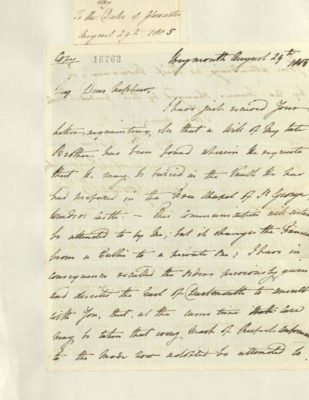 Copy
To the Duke of Gloucester
August 29th 1805
Copy 16763 Weymouth August 29th 1805
My Dear Nephew,
I have just received Your
letter acquainting Me that a Will of My late
Brother has been found wherein he requests
that he may be buried in the Vault He has
had prepared in the Choir Chapel of St George
Windsor Castle: – this communication will
be attended to by Me; but it changes the Funeral
from a Public to a private one; I have in
consequence recalled the orders previously given
and directed the Earl of Dartmouth to consult
with You, that, at the same time that care
may be taken that every Mark of Respect
to the Mode now adopted be attended to